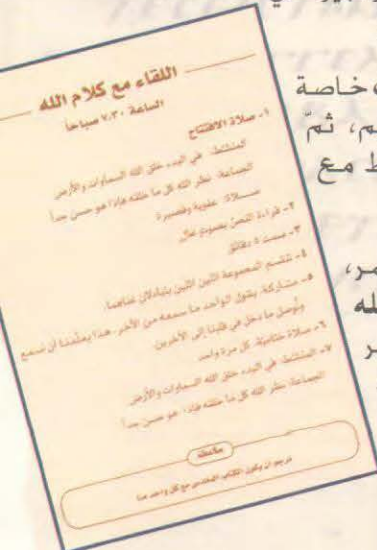 جبير في
خاصة
م، ثمّ
ط مع
مر،
لله
ر
اللقاء مع كلام الله
الساعة ٧،٣٠ صباحاً
١- صلاة الافتتاح
المنشط: في البدء خلق الله السماوات والأرض
الجماعة: نظر الله كل ما خلقه فإذا هو حسن جداً
صلاة: عفوية وقصيرة
٢- قراءة النص بصوت عالٍ
٣- صمت ٥ دقائق
٤- تنقسم المجموعة اثنين اثنين يتبادلان غناهما.
٥- مشاركة: يقول الواحد ما سمعه من الآخر، هذا يعلّمنا أن نسمع
ونُوصل ما دخل في قلبنا إلى الآخرين
٦- صلاة ختامية، كل مرة واحد
٧- المنشط: في البدء خلق الله السماوات والأرض
الجماعة: نظر الله كل ما خلقه فإذا هو حسن جداً
ملاحظة
نرجو أن يكون الكتاب المقدس مع كل واحد منا